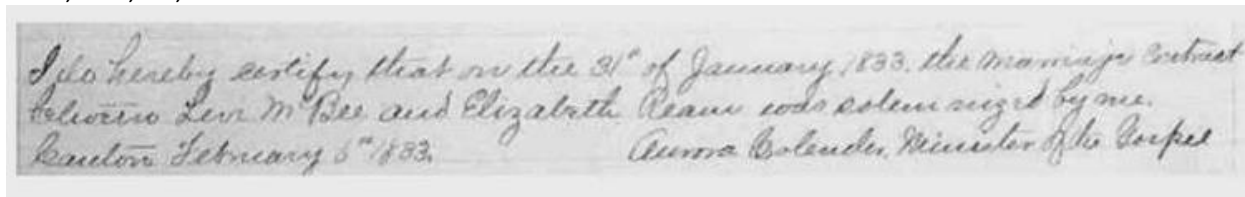 I do hereby certify that on the 31st of January 1833. the marriage contract
between Levi McBee and Elizabeth Ream was solemnized by me.
Canton February 5th 1833. Aurora Calender, Minister of the Gospel